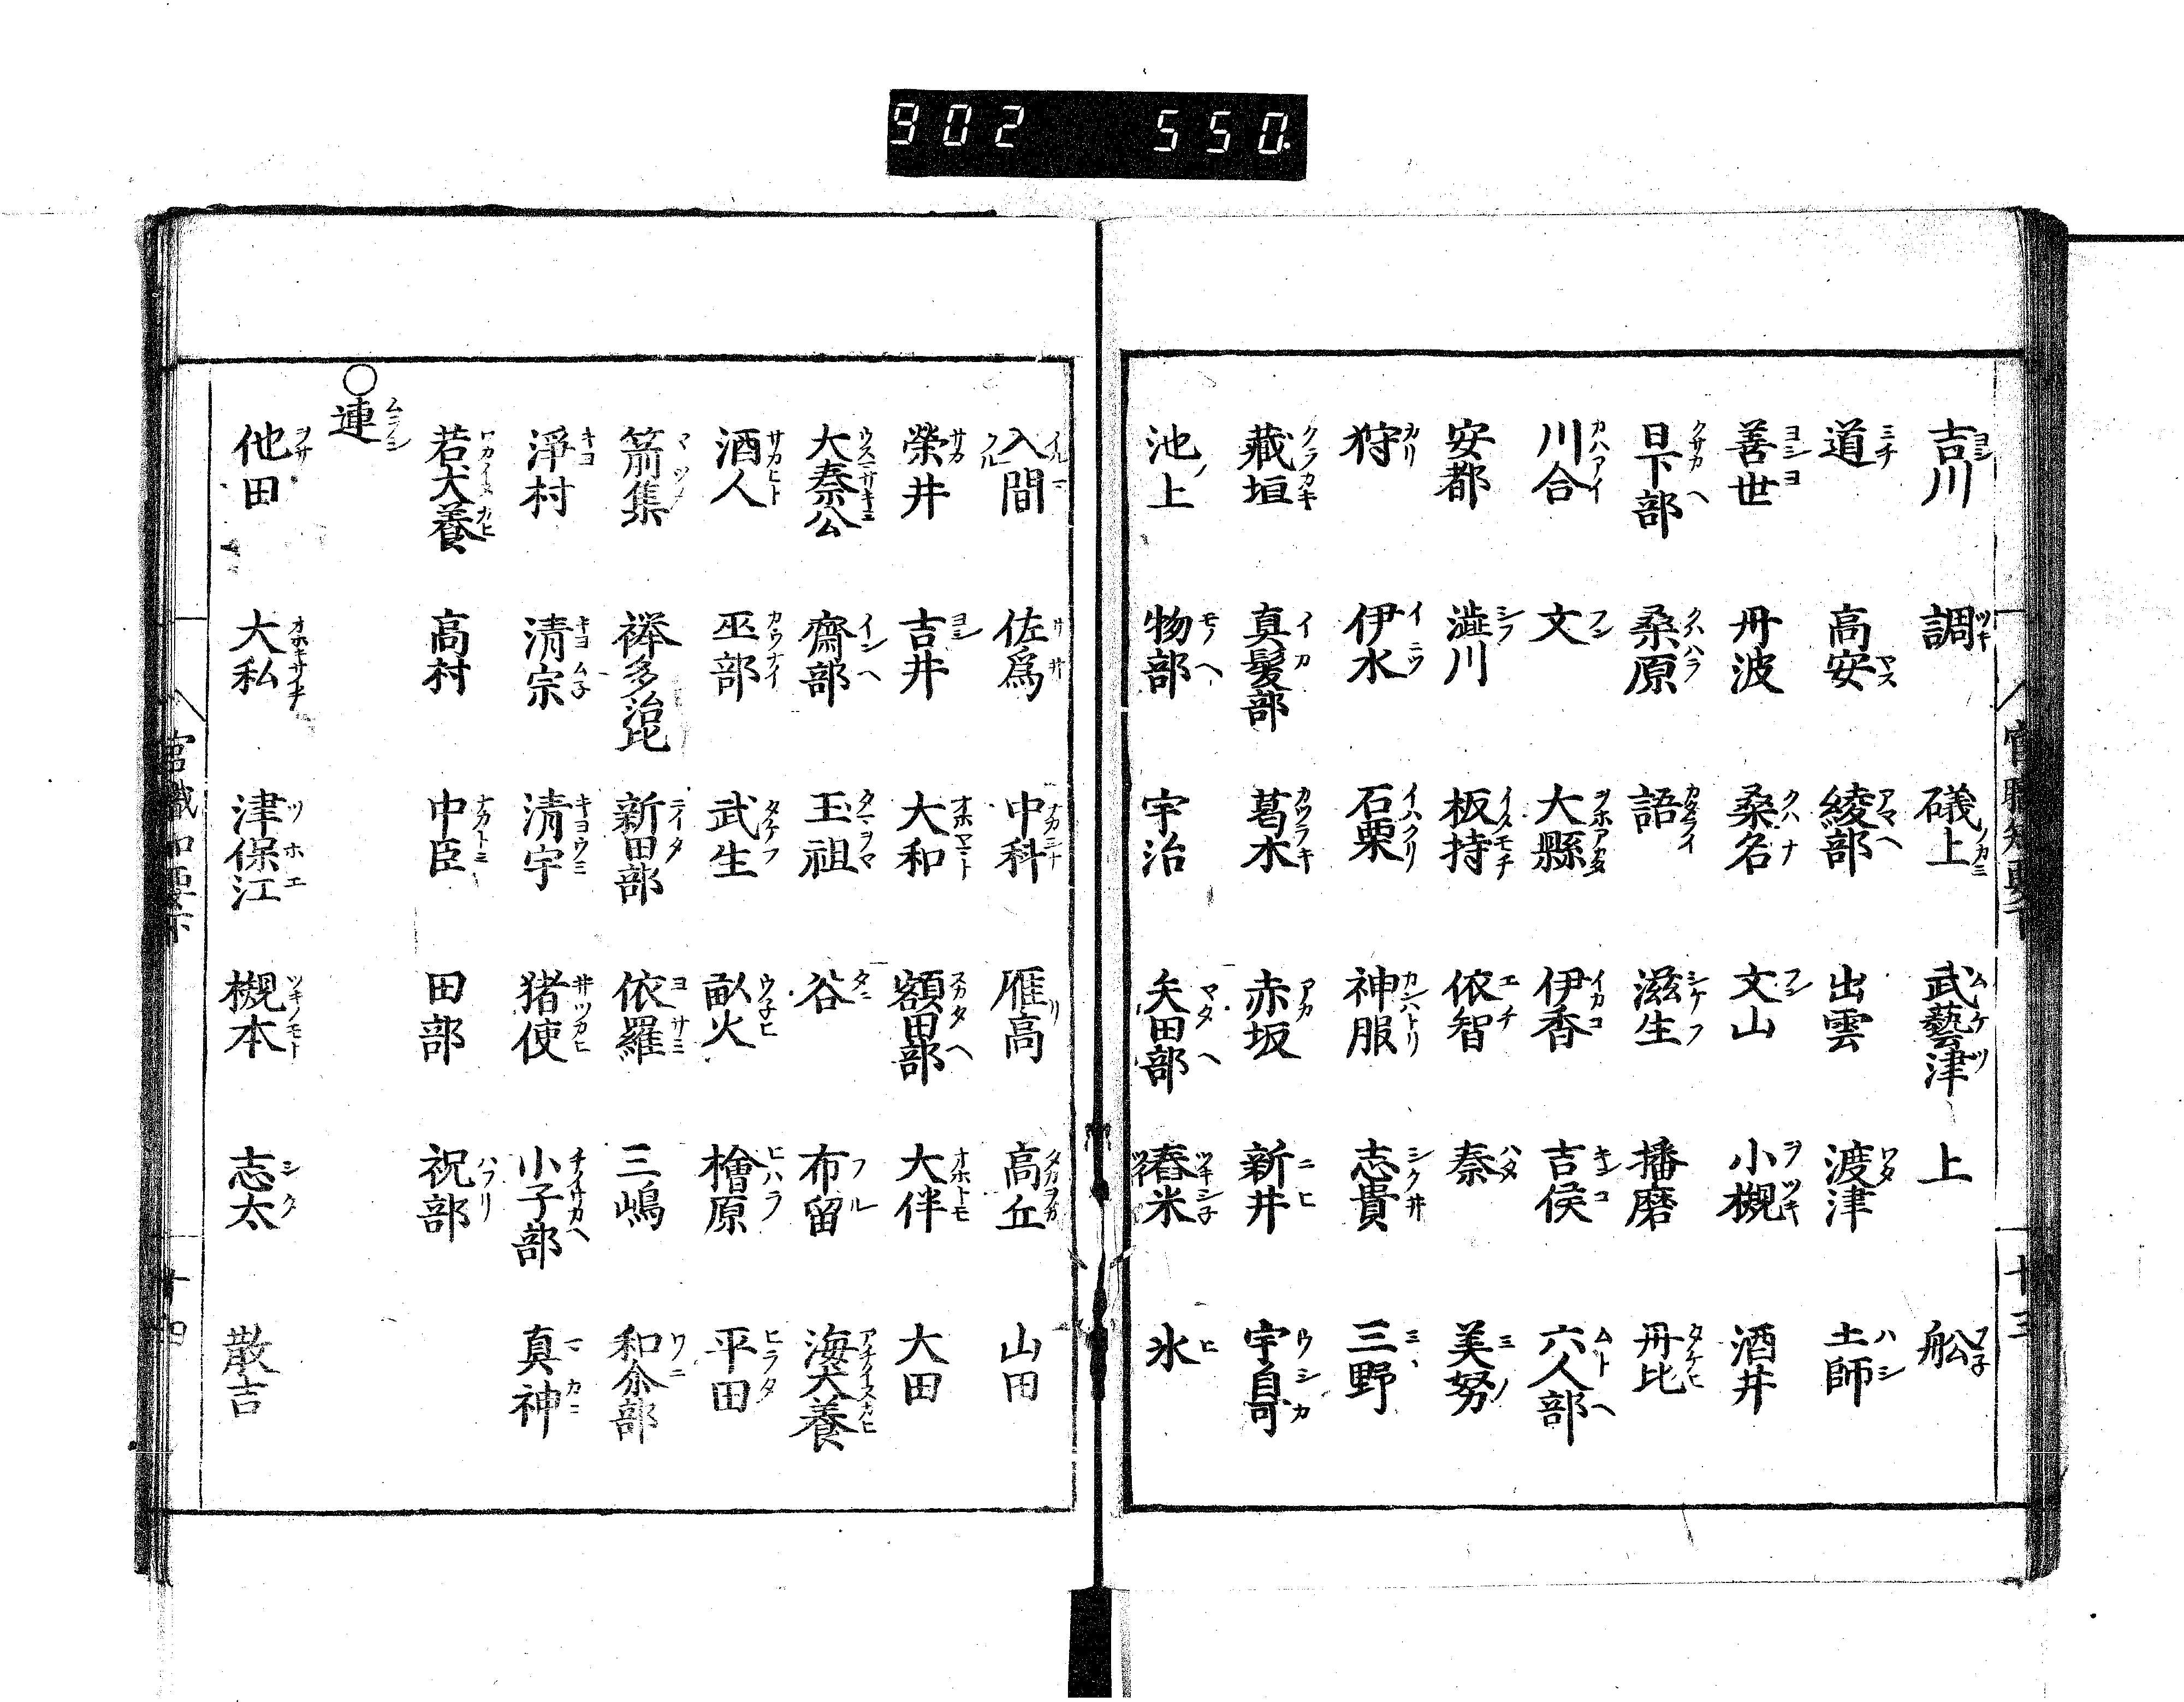 902 550.
吉川 調 礒上 武藝津 上 舩
道 高安 綾部 出雲 渡津 土師
善世 丹波 桑名 文山 小槻 酒井
日下部 桑原 語 滋生 播磨 丹比
川合 文 大縣 伊香 吉侯 六人部
安都 澁川 板持 依智 秦 美努
狩 伊水 石栗 神服 志貴 三野
藏垣 真髪部 葛木 赤坂 新井 宇自哥
池上 物部 宇治 矢田部 舂米 氷
入間 佐爲 中科 雁高 高丘 山田
榮井 吉井 大和 額田部 大伴 大田
大秦公 齋部 玉祖 谷 布留 海犬養
酒人 巫部 武生 畝火 檜原 平田
箭集 襷多治比 新田部 依羅 三嶋 和尒部
淨村 清宗 清宇 猪使 小子部 真神
若犬養 高村 中臣 田部 祝部
○連
他田 大私 津保江 槻本 志太 散吉